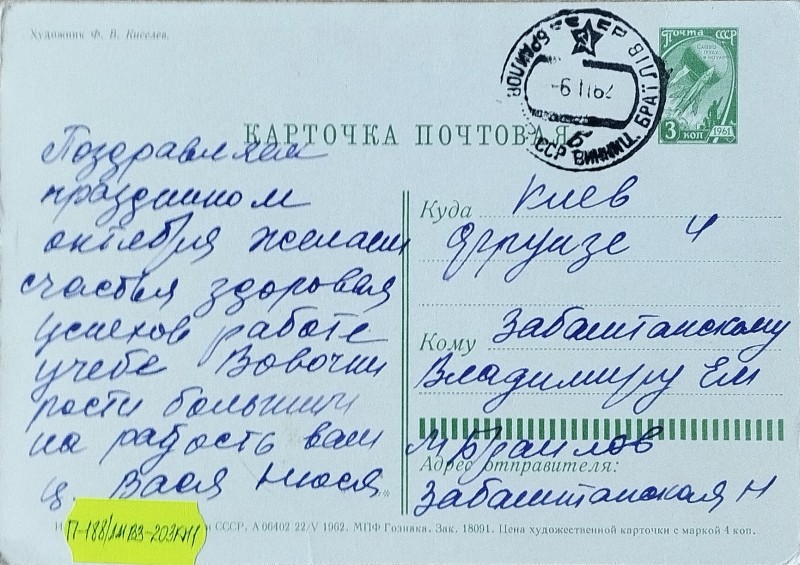 Художник Ф. В. Киселев.
ПОЧТА СССР
3 КОП 1961
-6 11 62
ССР ВИННИЦ. БРАЇЛІВ
Б
КАРТОЧКА ПОЧТОВАЯ
Поздравляем
праздником
октября желаем
счастья здоровая
успехов работе
учебе Вовочки
рости большим
на радость вам
ц. Вася Нюся
Куда Киев
Фрунзе 4
Кому Забаштанскому
Владимиру Ем
М Браилов
Адрес отправителя:
Забаштанская Н
СССР. А 06402 22/V 1962. МПФ Гознака. Зак. 18091. Цена художественной карточки с маркой 4 коп.